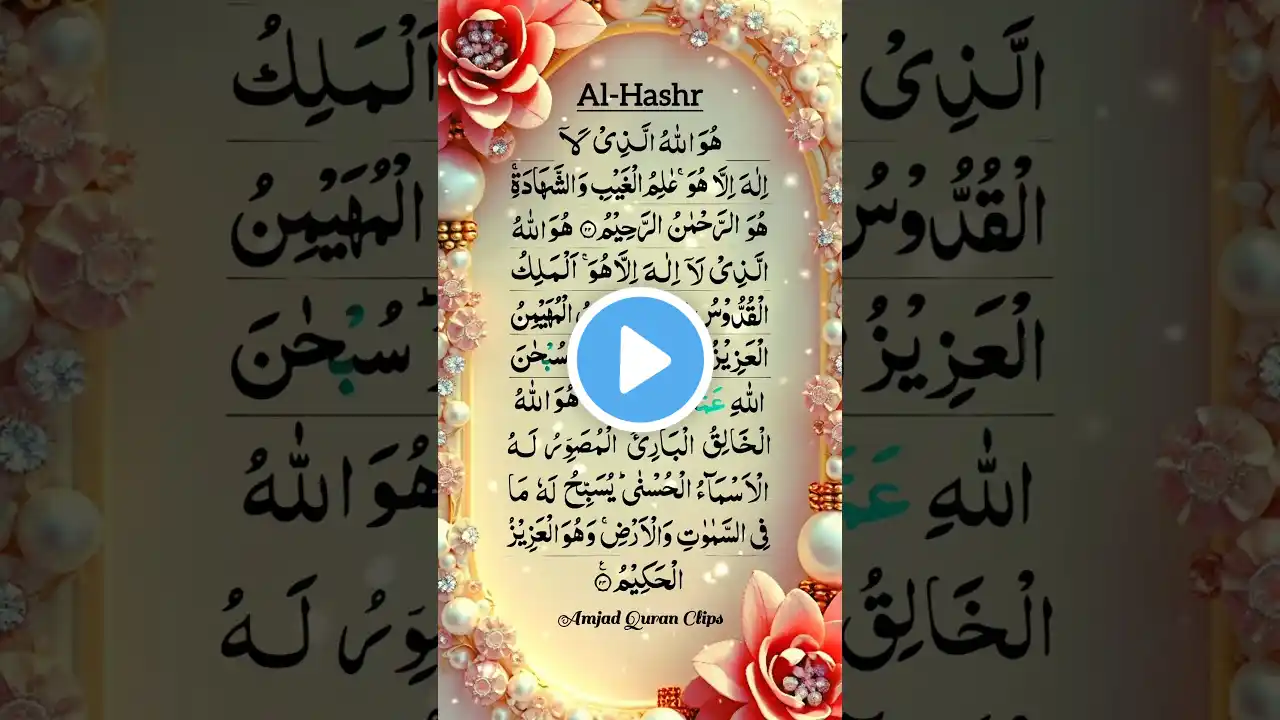 Al-Hashr
هُوَ اللّٰهُ الَّذِىْ لَاۤ
اِلٰهَ اِلَّا هُوَ ۚ عٰلِمُ الْغَيْبِ وَالشَّهَادَةِ ۚ
هُوَ الرَّحْمٰنُ الرَّحِيْمُ ۝۲۲ هُوَ اللّٰهُ
الَّذِىْ لَاۤ اِلٰهَ اِلَّا هُوَ ۚ اَلْمَلِكُ
الْقُدُّوْسُ الْمُهَيْمِنُ
الْعَزِيْزُ سُبْحٰنَ
اللّٰهِ هُوَ اللّٰهُ
الْخَالِقُ الْبَارِئُ الْمُصَوِّرُ لَهُ
الْاَسْمَآءُ الْحُسْنٰى ؕ يُسَبِّحُ لَهٗ مَا
فِى السَّمٰوٰتِ وَالْاَرْضِ ۚ وَهُوَ الْعَزِيْزُ
الْحَكِيْمُ ۝
Amjad Quran Clips